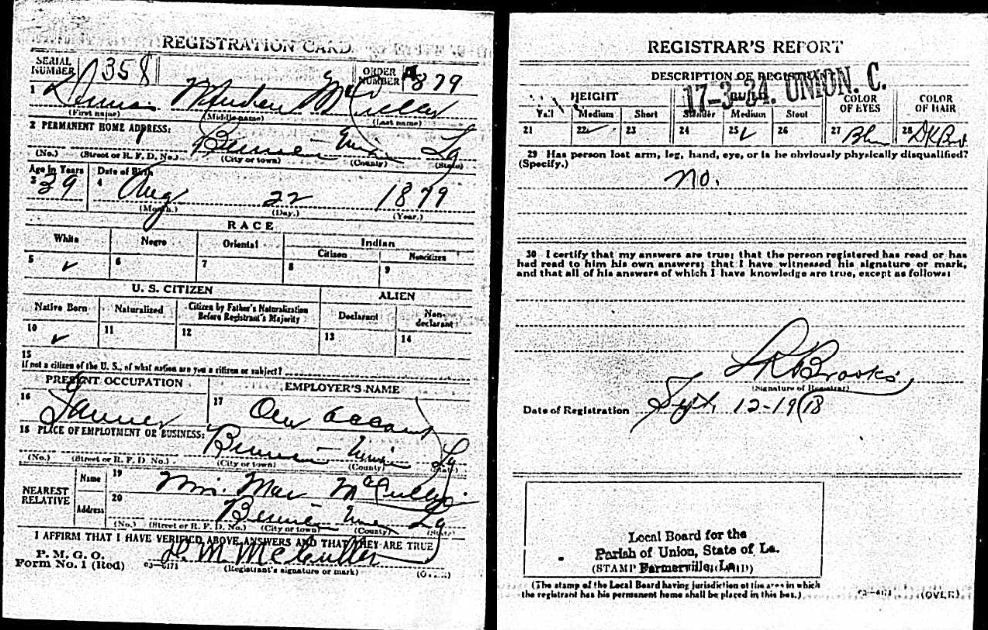 REGISTRATION CARD
SERIAL NUMBER 1358 ORDER NUMBER A 879
1
(First name) (Middle name) (Last name)
2 PERMANENT HOME ADDRESS:
Union La
(No.) (Street or R. F. D. No.) (City or town) (County) (State)
Age in Years Date of Birth
3 39 4 Aug 22 1879
(Month.) (Day.) (Year.)
RACE
White Negro Oriental Indian
Citizen Noncitizen
5 ✓ 6 7 8 9
U. S. CITIZEN ALIEN
Native Born Naturalized Citizen by Father's Naturalization Before Registrant's Majority Declarant Non-declarant
10 ✓ 11 12 13 14
15
If not a citizen of the U. S., of what nation are you a citizen or subject?
PRESENT OCCUPATION EMPLOYER'S NAME
16 Farmer 17 Own account
18 PLACE OF EMPLOYMENT OR BUSINESS:
Union La
(No.) (Street or R. F. D. No.) (City or town) (County) (State)
NEAREST RELATIVE
Name 19 Mrs. Mae
Address 20 Union La
(No.) (Street or R. F. D. No.) (City or town) (County) (State)
I AFFIRM THAT I HAVE VERIFIED ABOVE ANSWERS AND THAT THEY ARE TRUE
P. M. G. O.
Form No. 1 (Red) 03-6171
(Registrant's signature or mark) (OVER)
REGISTRAR'S REPORT
17-3-34. UNION. C.
DESCRIPTION OF REGISTRANT
HEIGHT COLOR OF EYES COLOR OF HAIR
Tall Medium Short Slender Medium Stout
21 22 ✓ 23 24 25 ✓ 26 27 Blu 28
29 Has person lost arm, leg, hand, eye, or is he obviously physically disqualified?
(Specify.)
no.
30 I certify that my answers are true; that the person registered has read or has
had read to him his own answers; that I have witnessed his signature or mark,
and that all of his answers of which I have knowledge are true, except as follows:
Brooks
(Signature of Registrar)
Date of Registration Sept. 12-1918
Local Board for the
Parish of Union, State of La.
(STAMP Farmerville, La.
(The stamp of the Local Board having jurisdiction of the area in which
the registrant has his permanent home shall be placed in this box.)
03-6171 (OVER)